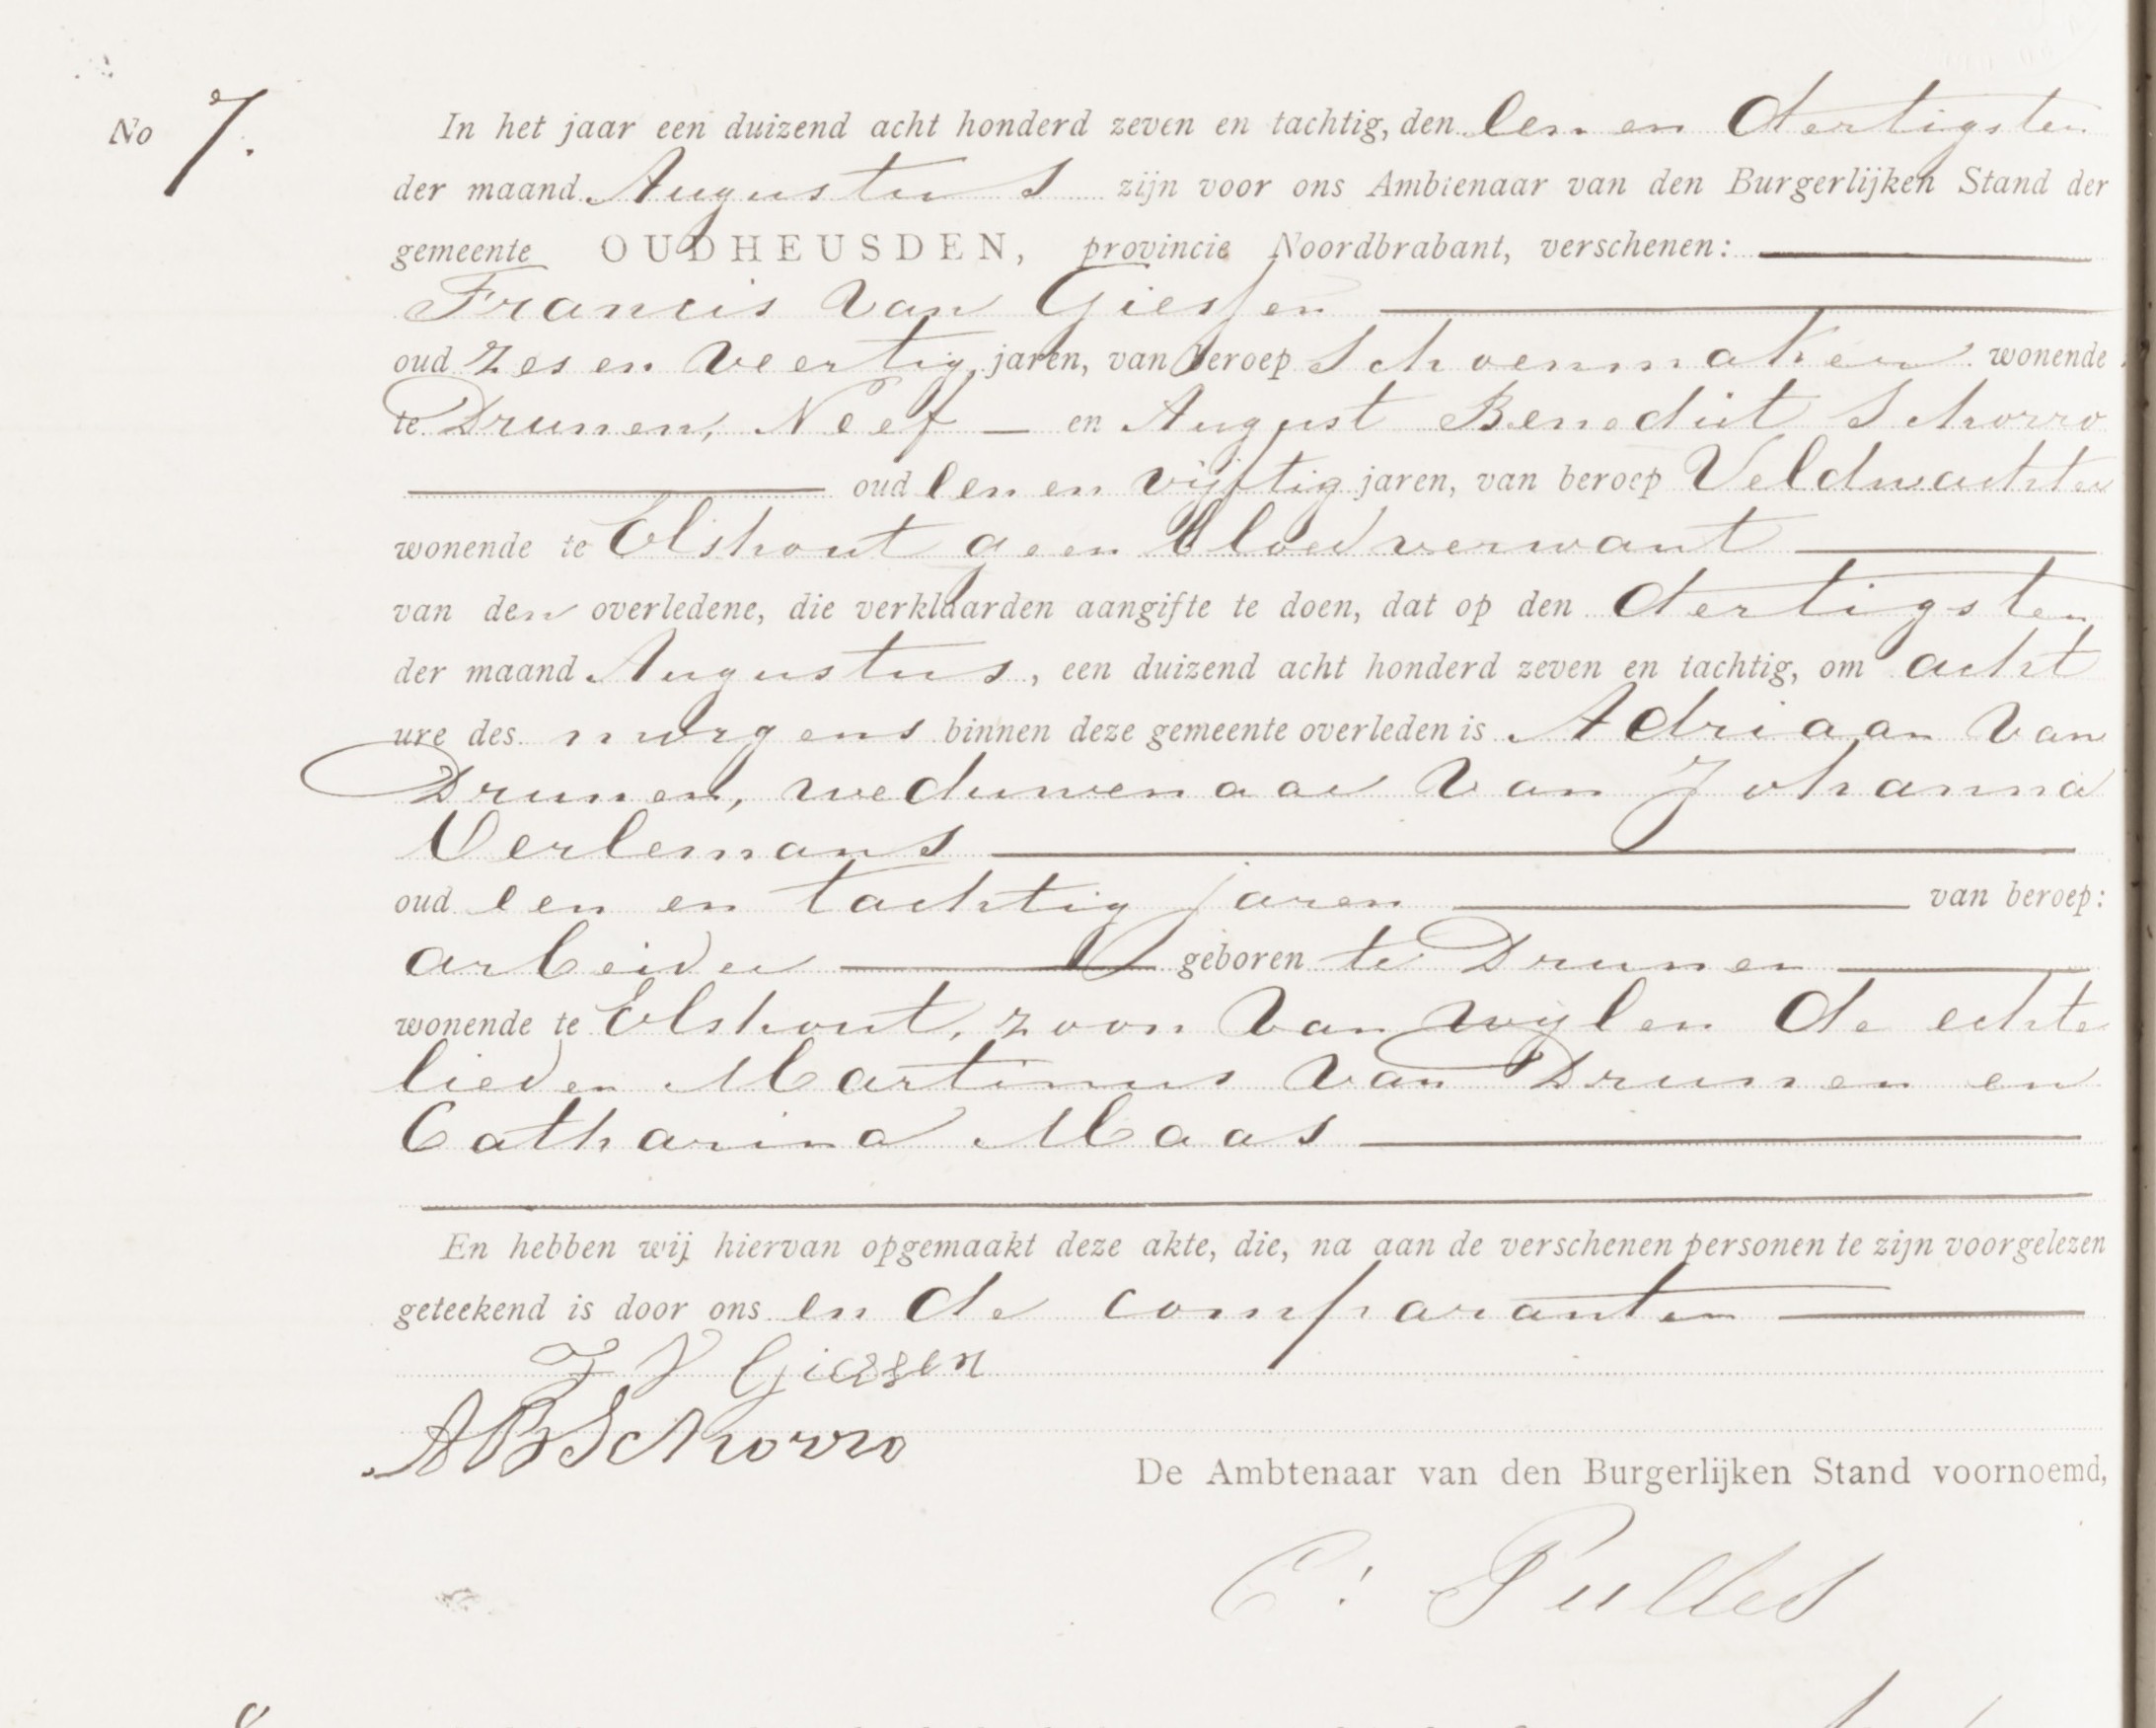 No 7. In het jaar een duizend acht honderd zeven en tachtig, den een en dertigsten
der maand Augustus zijn voor ons Ambtenaar van den Burgerlijken Stand der
gemeente OUDHEUSDEN, provincie Noordbrabant, verschenen:
Francis van Giessen
oud zes en veertig jaren, van beroep Schoenmaker wonende
te Drunen, Neef — en August Benedict Schorro
oud een en vijftig jaren, van beroep Veldwachter
wonende te Elshout geen bloedverwant
van den overledene, die verklaarden aangifte te doen, dat op den dertigsten
der maand Augustus, een duizend acht honderd zeven en tachtig, om acht
ure des morgens binnen deze gemeente overleden is Adriaan van
Drunen, weduwenaar van Johanna
Verlemans
oud een en tachtig jaren van beroep:
arbeider geboren te Drunen
wonende te Elshout, zoon van wijlen de echte
lieden Martinus van Drunen en
Catharina Maas
En hebben wij hiervan opgemaakt deze akte, die, na aan de verschenen personen te zijn voorgelezen
geteekend is door ons en de comparanten
F V Giessen
AB Schorro
De Ambtenaar van den Burgerlijken Stand voornoemd,
C: Pulles